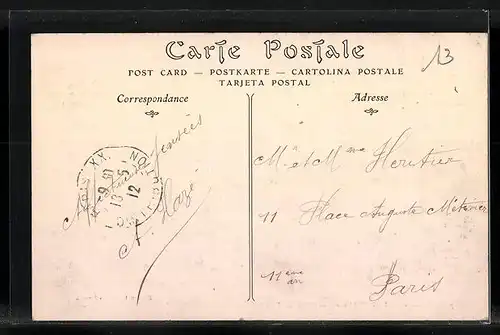 Carte Postale
POST CARD — POSTKARTE — CARTOLINA POSTALE
TARJETA POSTAL
13
Correspondance
Adresse
pensées
A. Hazé
M. et Mme Heritier
11 Place Auguste Métivier
11ème arr
Paris
PARIS XX
13 - 5
12